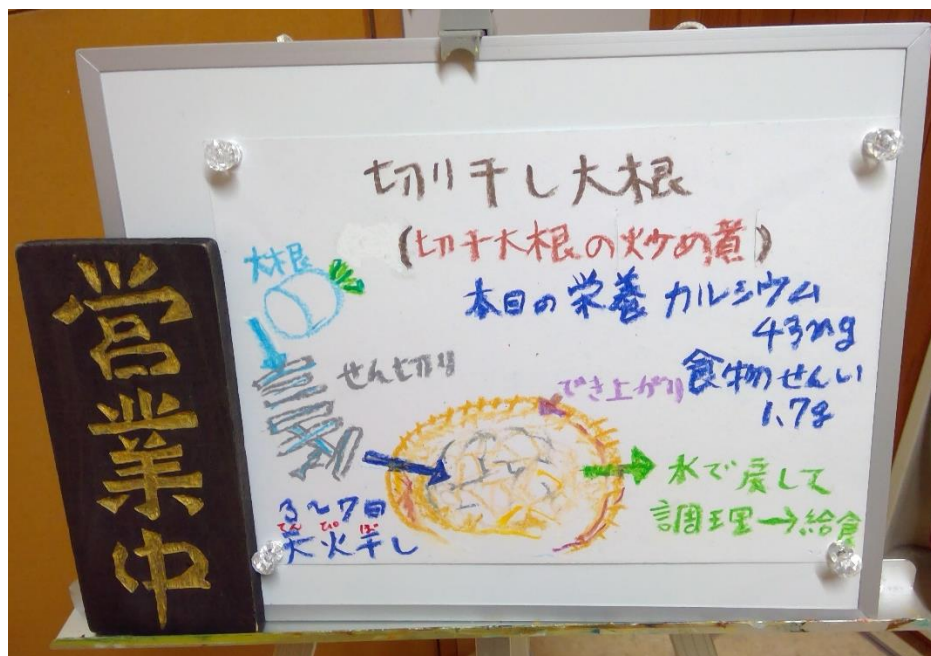 営業中
切り干し大根
(切干大根の炒め煮)
本日の栄養 カルシウム
43mg
食物せんい
1.7g
大根
せん切り
でき上がり
3〜7日
てんぴぼ
天火干し
水で戻して
調理→給食